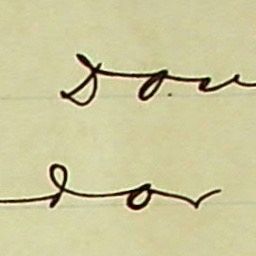 Dou
dor